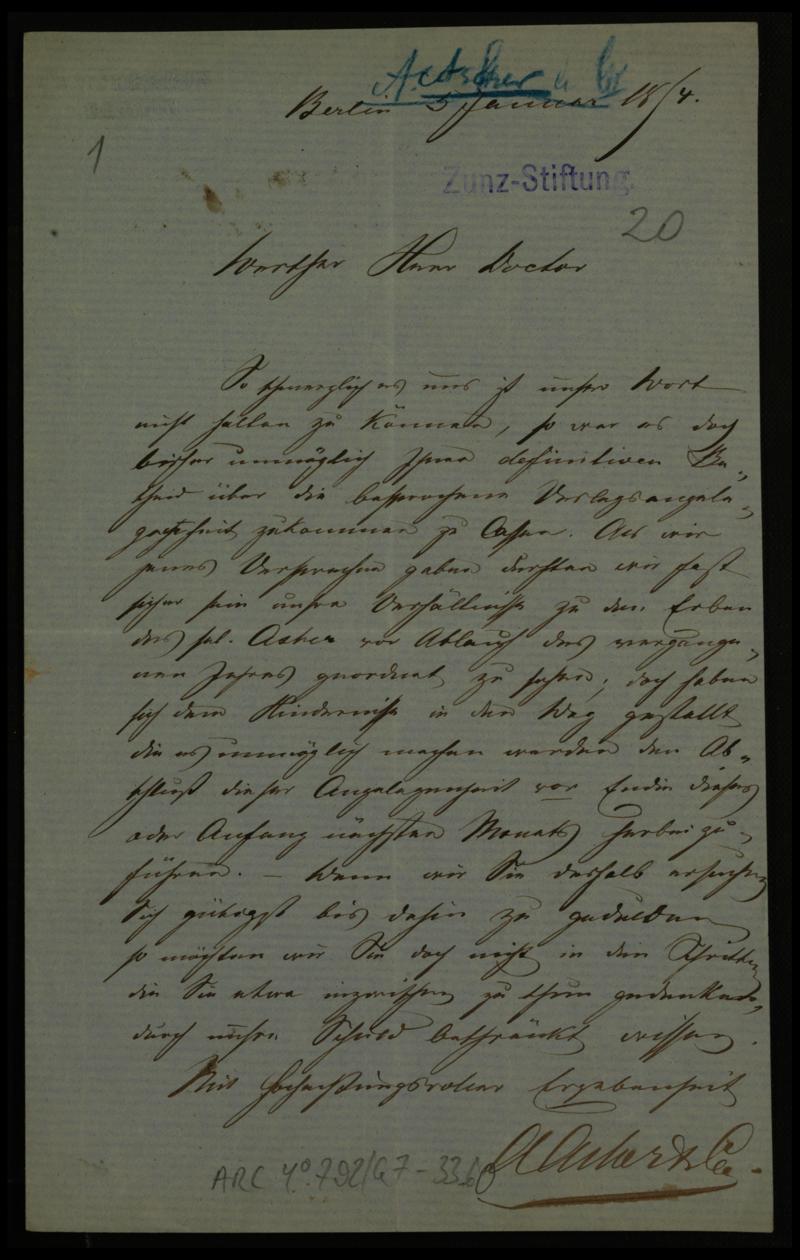 A. Asher & Co
Berlin 5 Januar 1854.
1
Zunz-Stiftung.
20
Werther Herr Doctor
So schmerzlich es uns ist unser Wort
nicht halten zu können, so war es doch
bisher unmöglich Ihnen definitiven Be„
scheid über die besprochene Verlagsangele„
genheit zukommen zu lassen. Als wir
jenes Versprechen gaben durften wir fast
sicher sein unsre Verhältnisse zu den Erben
des sel. Asher vor Ablauf des vergange„
nen Jahres geordnet zu sehen; doch haben
sich dem Hindernisse in den Weg gestellt
die es unmöglich machen werden den Ab„
schluß dieser Angelegenheit vor Ende dieses
oder Anfang nächsten Monats herbeizu„
führen. – Wenn wir Sie deshalb ersuchen
Sich gütigst bis dahin zu gedulden
so möchten wir Sie doch nicht in den Schritten
die Sie etwa inzwischen zu thun gedenken„
durch unsre Schuld beschränkt wissen.
Mit hochachtungsvoller Ergebenheit
A Asher & Co.
ARC 4º 792/G7-33.60